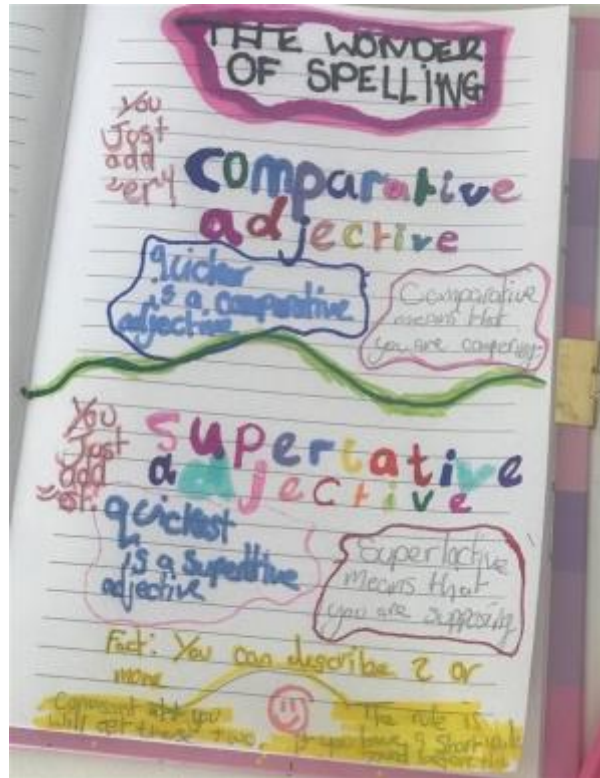 THE WONDER
OF SPELLING
You
Just
add
"er"!
comparative
adjective
quicker
is a comparative
adjective
Comparative
means that
you are comparing
You
Just
add
"est".
superlative
adjective
quickest
is a superltive
adjective
Superlactive
means that
you are supposing
Fact: You can describe 2 or
more
you
The rule is
will get these two.
short